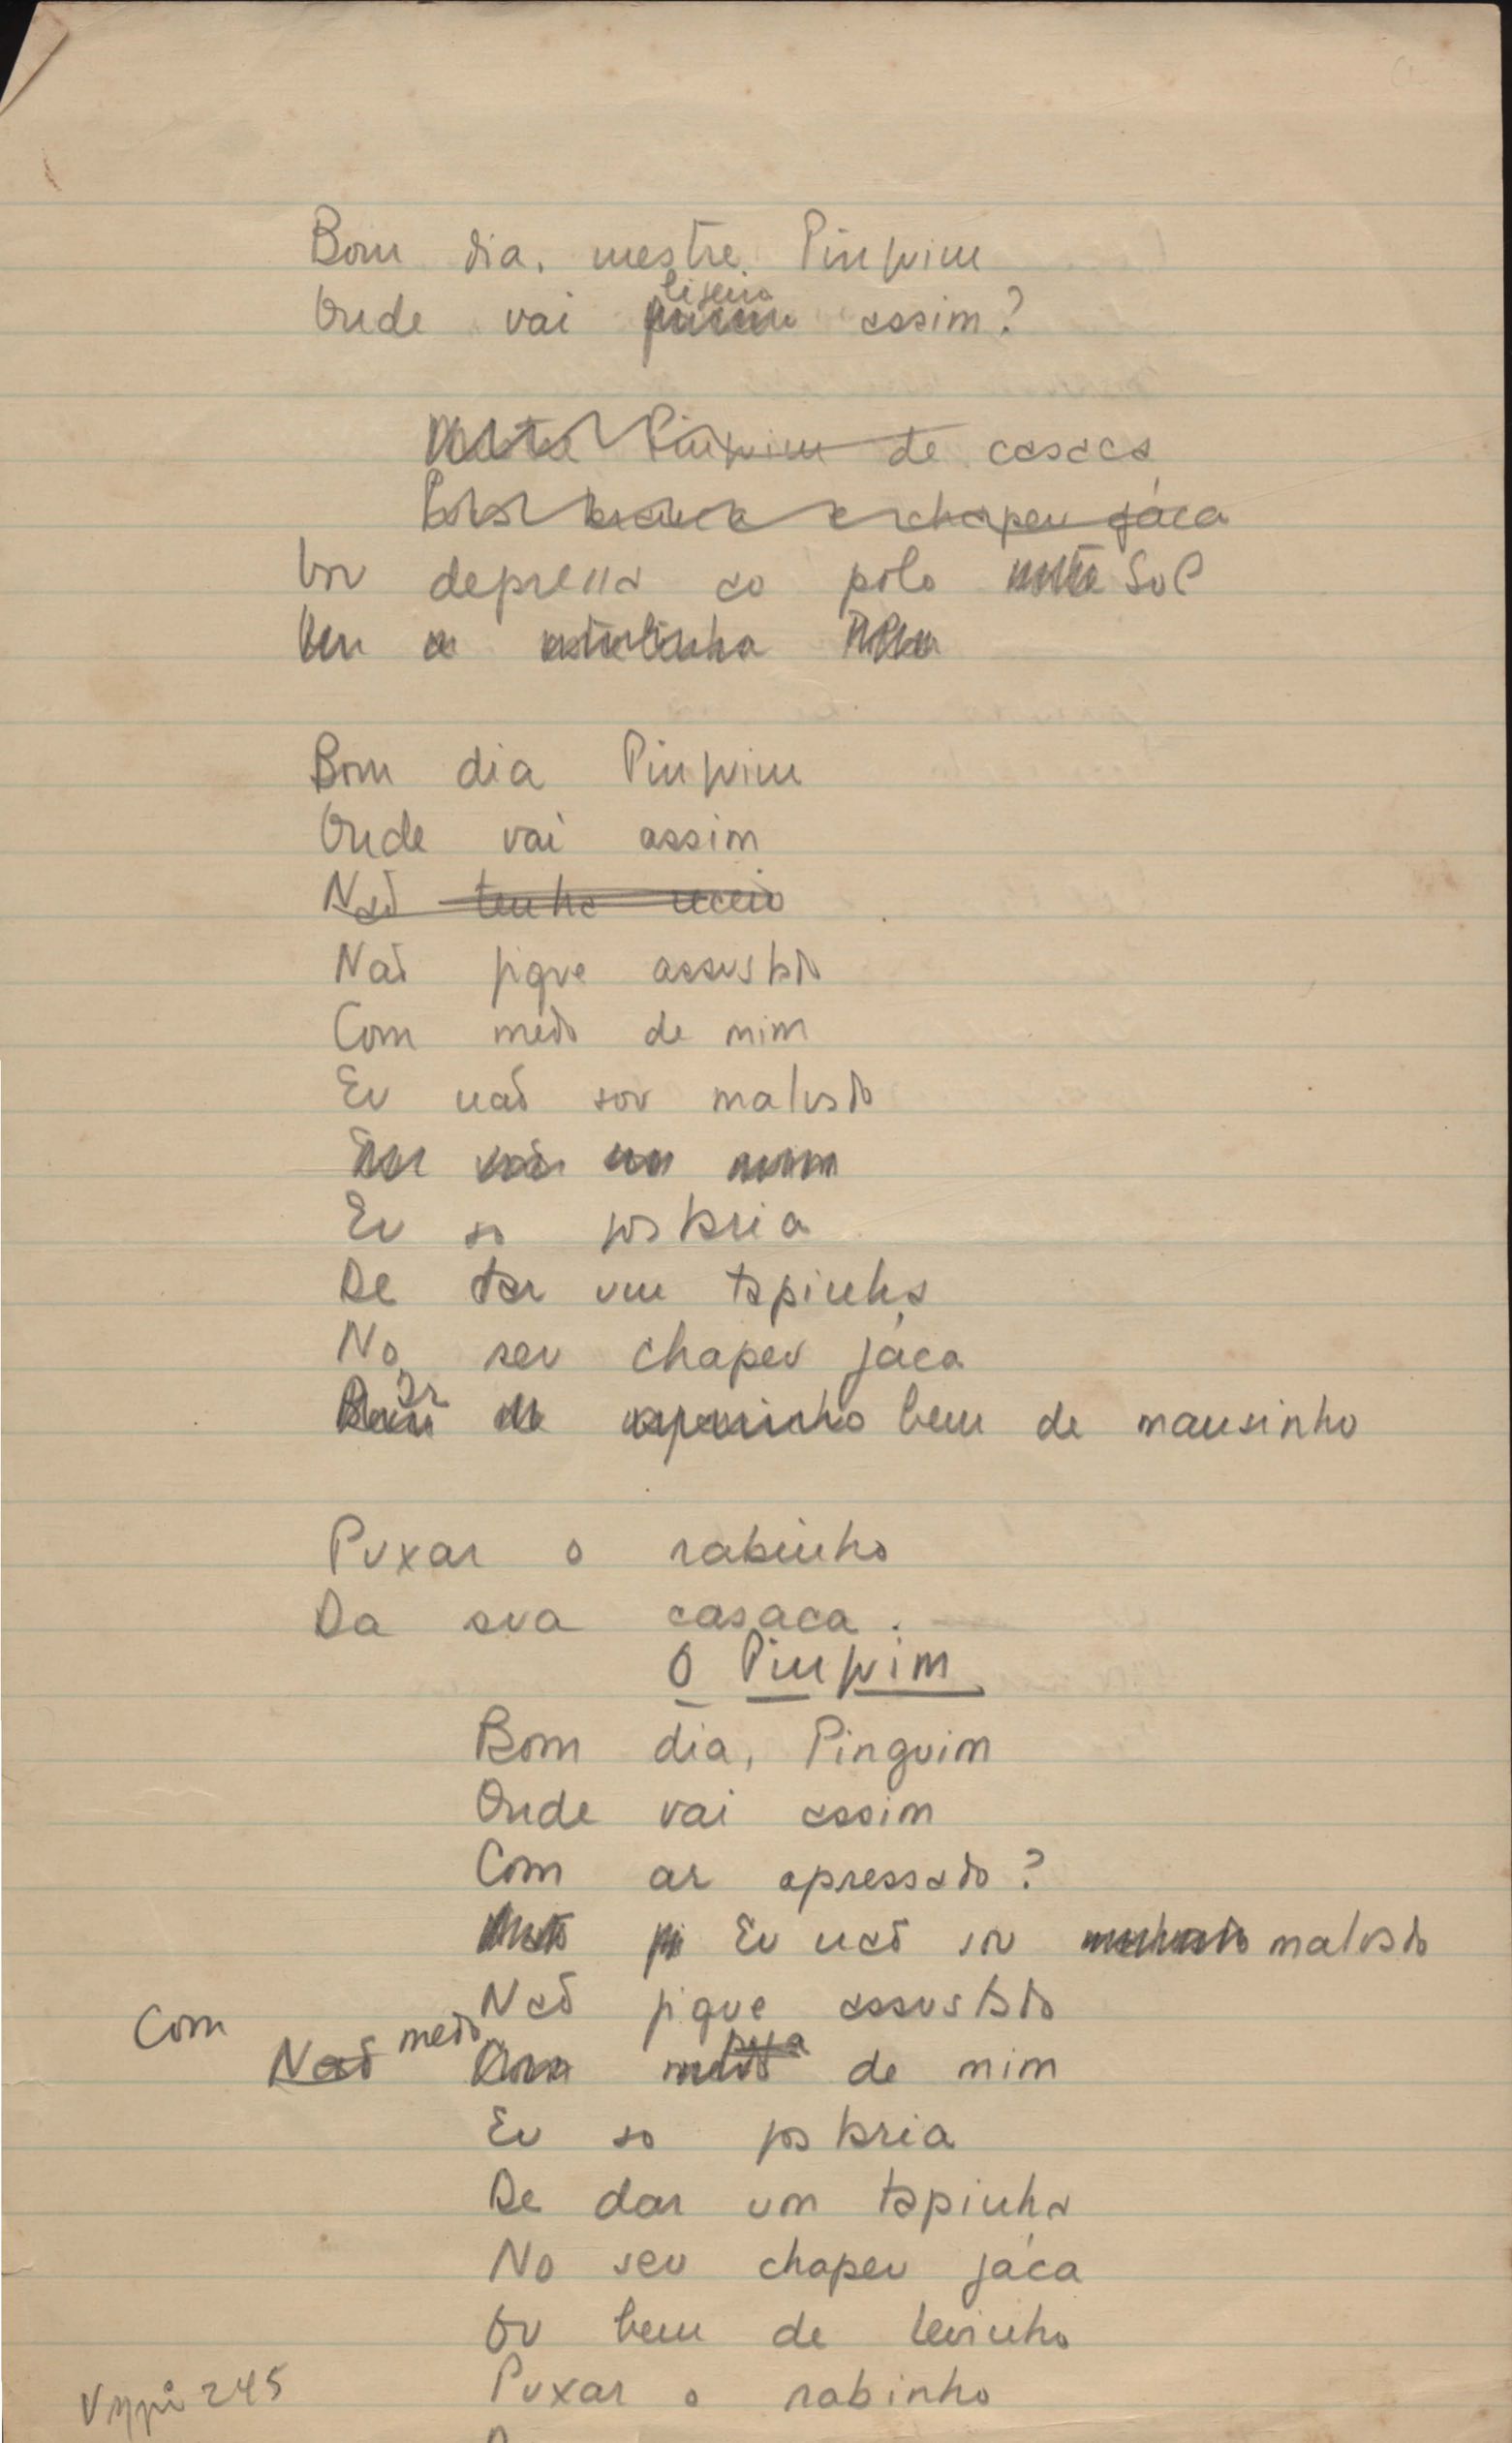 Bom dia, mestre Pinguim
ligeiro
Onde vai assim?
Mestre Pinguim de casaca
Bolsa branca e chapeu jáca
Vou depressa ao polo norte Sul
Bom dia Pinguim
Onde vai assim
Não tenha receio
Não fique assustado
Com medo de mim
Eu não sou malvado
Eu so gostaria
De dar um tapinha
No seu chapeu jáca
Ou
bem de mansinho
Puxar o rabinho
Da sua casaca.
O Pinguim
Bom dia, Pinguim
Onde vai assim
Com ar apressado?
Eu não sou malvado
Não fique assustado
Com
Não medo Com medo de mim
Eu so gostaria
De dar um tapinha
No seu chapeu jáca
Ou bem de levinho
Puxar o rabinho
Vmpi 245